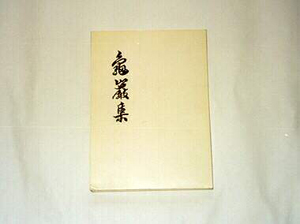 龜巖集